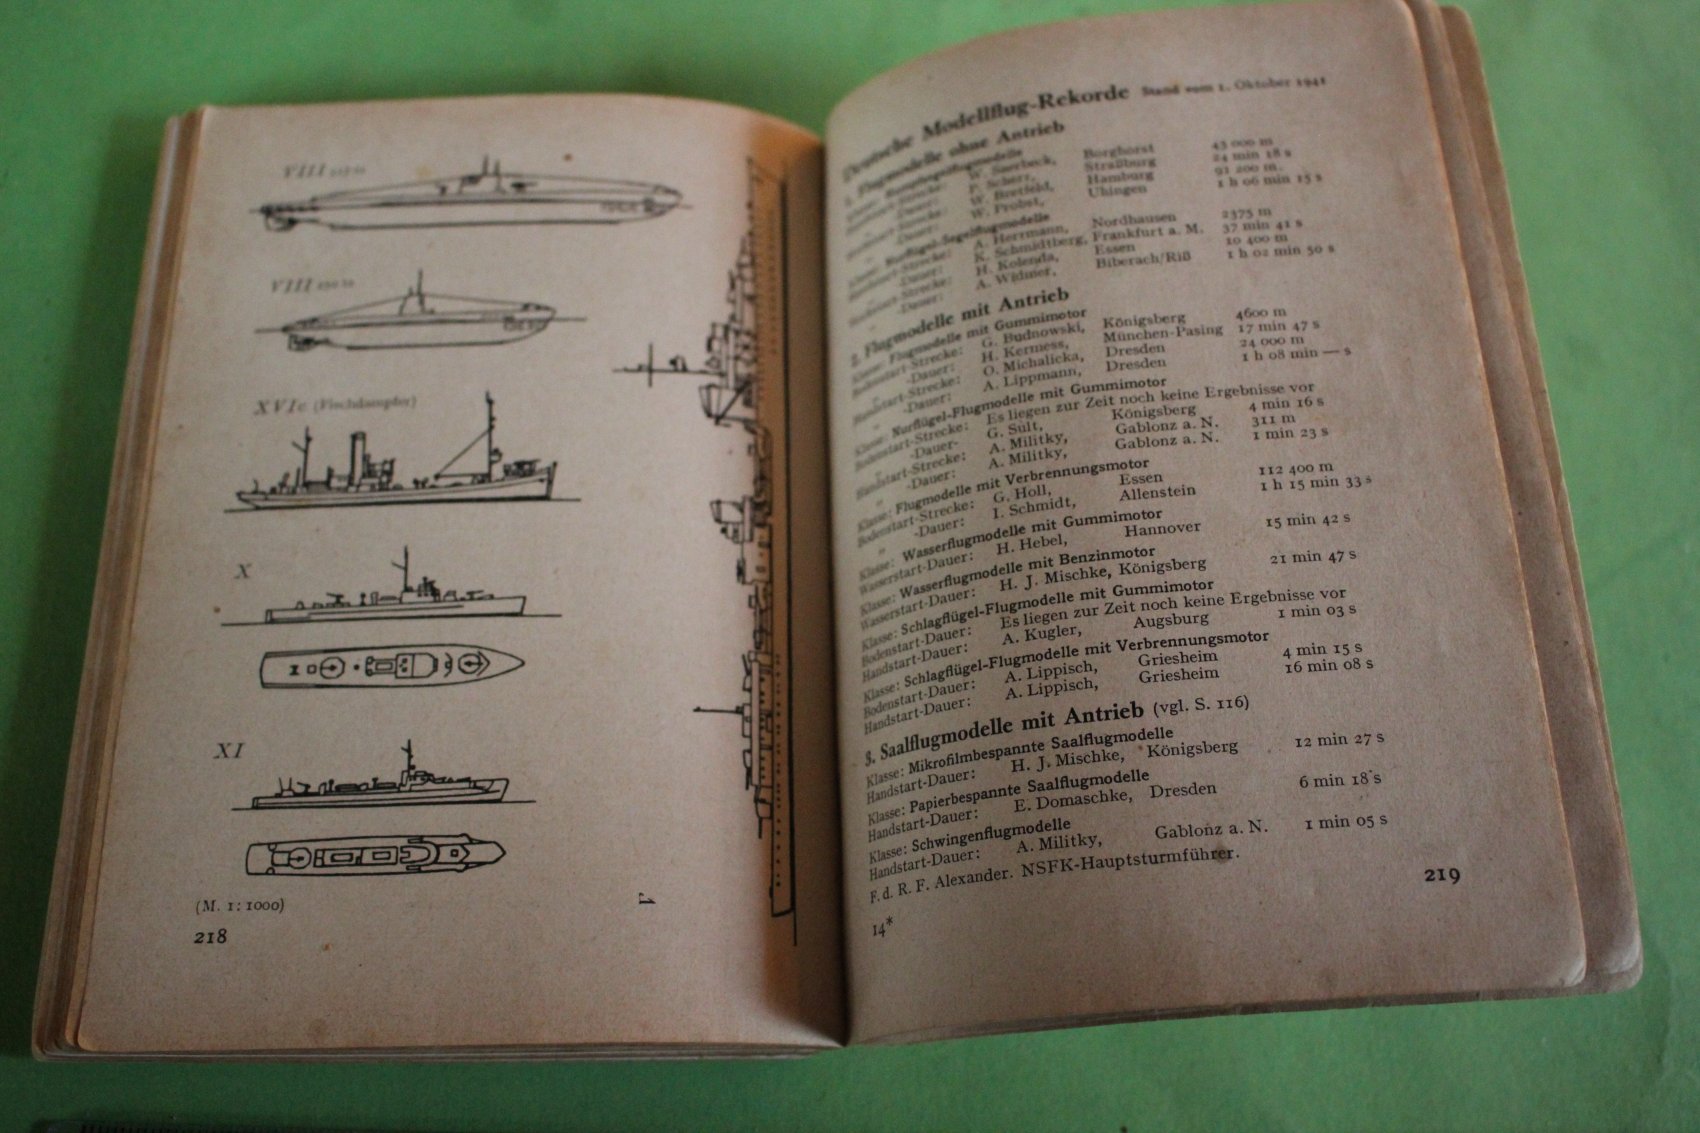 VIII
VIII
XVIc (Fischdampfer)
X
XI
(M. 1:1000)
218
1
Deutsche Modellflug-Rekorde Stand vom 1. Oktober 1941
1. Flugmodelle ohne Antrieb
Klasse: Rumpfsegelflugmodelle
Bodenstart-Strecke: W. Saerbeck, Borghorst 43 000 m
„ -Dauer: P. Scherr, Straßburg 24 min 18 s
Handstart-Strecke: W. Bretfeld, Hamburg 91 200 m.
„ -Dauer: W. Probst, Uhingen 1 h 06 min 15 s
Klasse: Nurflügel-Segelflugmodelle
Bodenstart-Strecke: A. Herrmann, Nordhausen 2375 m
„ -Dauer: K. Schmidtberg, Frankfurt a. M. 37 min 41 s
Handstart-Strecke: H. Kolenda, Essen 10 400 m
„ -Dauer: A. Widmer, Biberach/Riß 1 h 02 min 50 s
2. Flugmodelle mit Antrieb
Klasse: Flugmodelle mit Gummimotor
Bodenstart-Strecke: G. Budnowski, Königsberg 4600 m
„ -Dauer: H. Kermess, München-Pasing 17 min 47 s
Handstart-Strecke: O. Michalicka, Dresden 24 000 m
„ -Dauer: A. Lippmann, Dresden 1 h 08 min — s
Klasse: Nurflügel-Flugmodelle mit Gummimotor
Bodenstart-Strecke: Es liegen zur Zeit noch keine Ergebnisse vor
„ -Dauer- G. Sult, Königsberg 4 min 16 s
Handstart-Strecke: A. Militky, Gablonz a. N. 311 m
„ -Dauer: A. Militky, Gablonz a. N. 1 min 23 s
Klasse: Flugmodelle mit Verbrennungsmotor
Bodenstart-Strecke: G. Holl, Essen 112 400 m
„ -Dauer: I. Schmidt, Allenstein 1 h 15 min 33 s
Klasse: Wasserflugmodelle mit Gummimotor
Wasserstart-Dauer: H. Hebel, Hannover 15 min 42 s
Klasse: Wasserflugmodelle mit Benzinmotor
Wasserstart-Dauer: H. J. Mischke, Königsberg 21 min 47 s
Klasse: Schlagflügel-Flugmodelle mit Gummimotor
Bodenstart-Dauer: Es liegen zur Zeit noch keine Ergebnisse vor
Handstart-Dauer: A. Kugler, Augsburg 1 min 03 s
Klasse: Schlagflügel-Flugmodelle mit Verbrennungsmotor
Bodenstart-Dauer: A. Lippisch, Griesheim 4 min 15 s
Handstart-Dauer: A. Lippisch, Griesheim 16 min 08 s
3. Saalflugmodelle mit Antrieb (vgl. S. 116)
Klasse: Mikrofilmbespannte Saalflugmodelle
Handstart-Dauer: H. J. Mischke, Königsberg 12 min 27 s
Klasse: Papierbespannte Saalflugmodelle
Handstart-Dauer: E. Domaschke, Dresden 6 min 18 s
Klasse: Schwingenflugmodelle
Handstart-Dauer: A. Militky, Gablonz a. N. 1 min 05 s
F. d. R. F. Alexander. NSFK-Hauptsturmführer.
219
14*